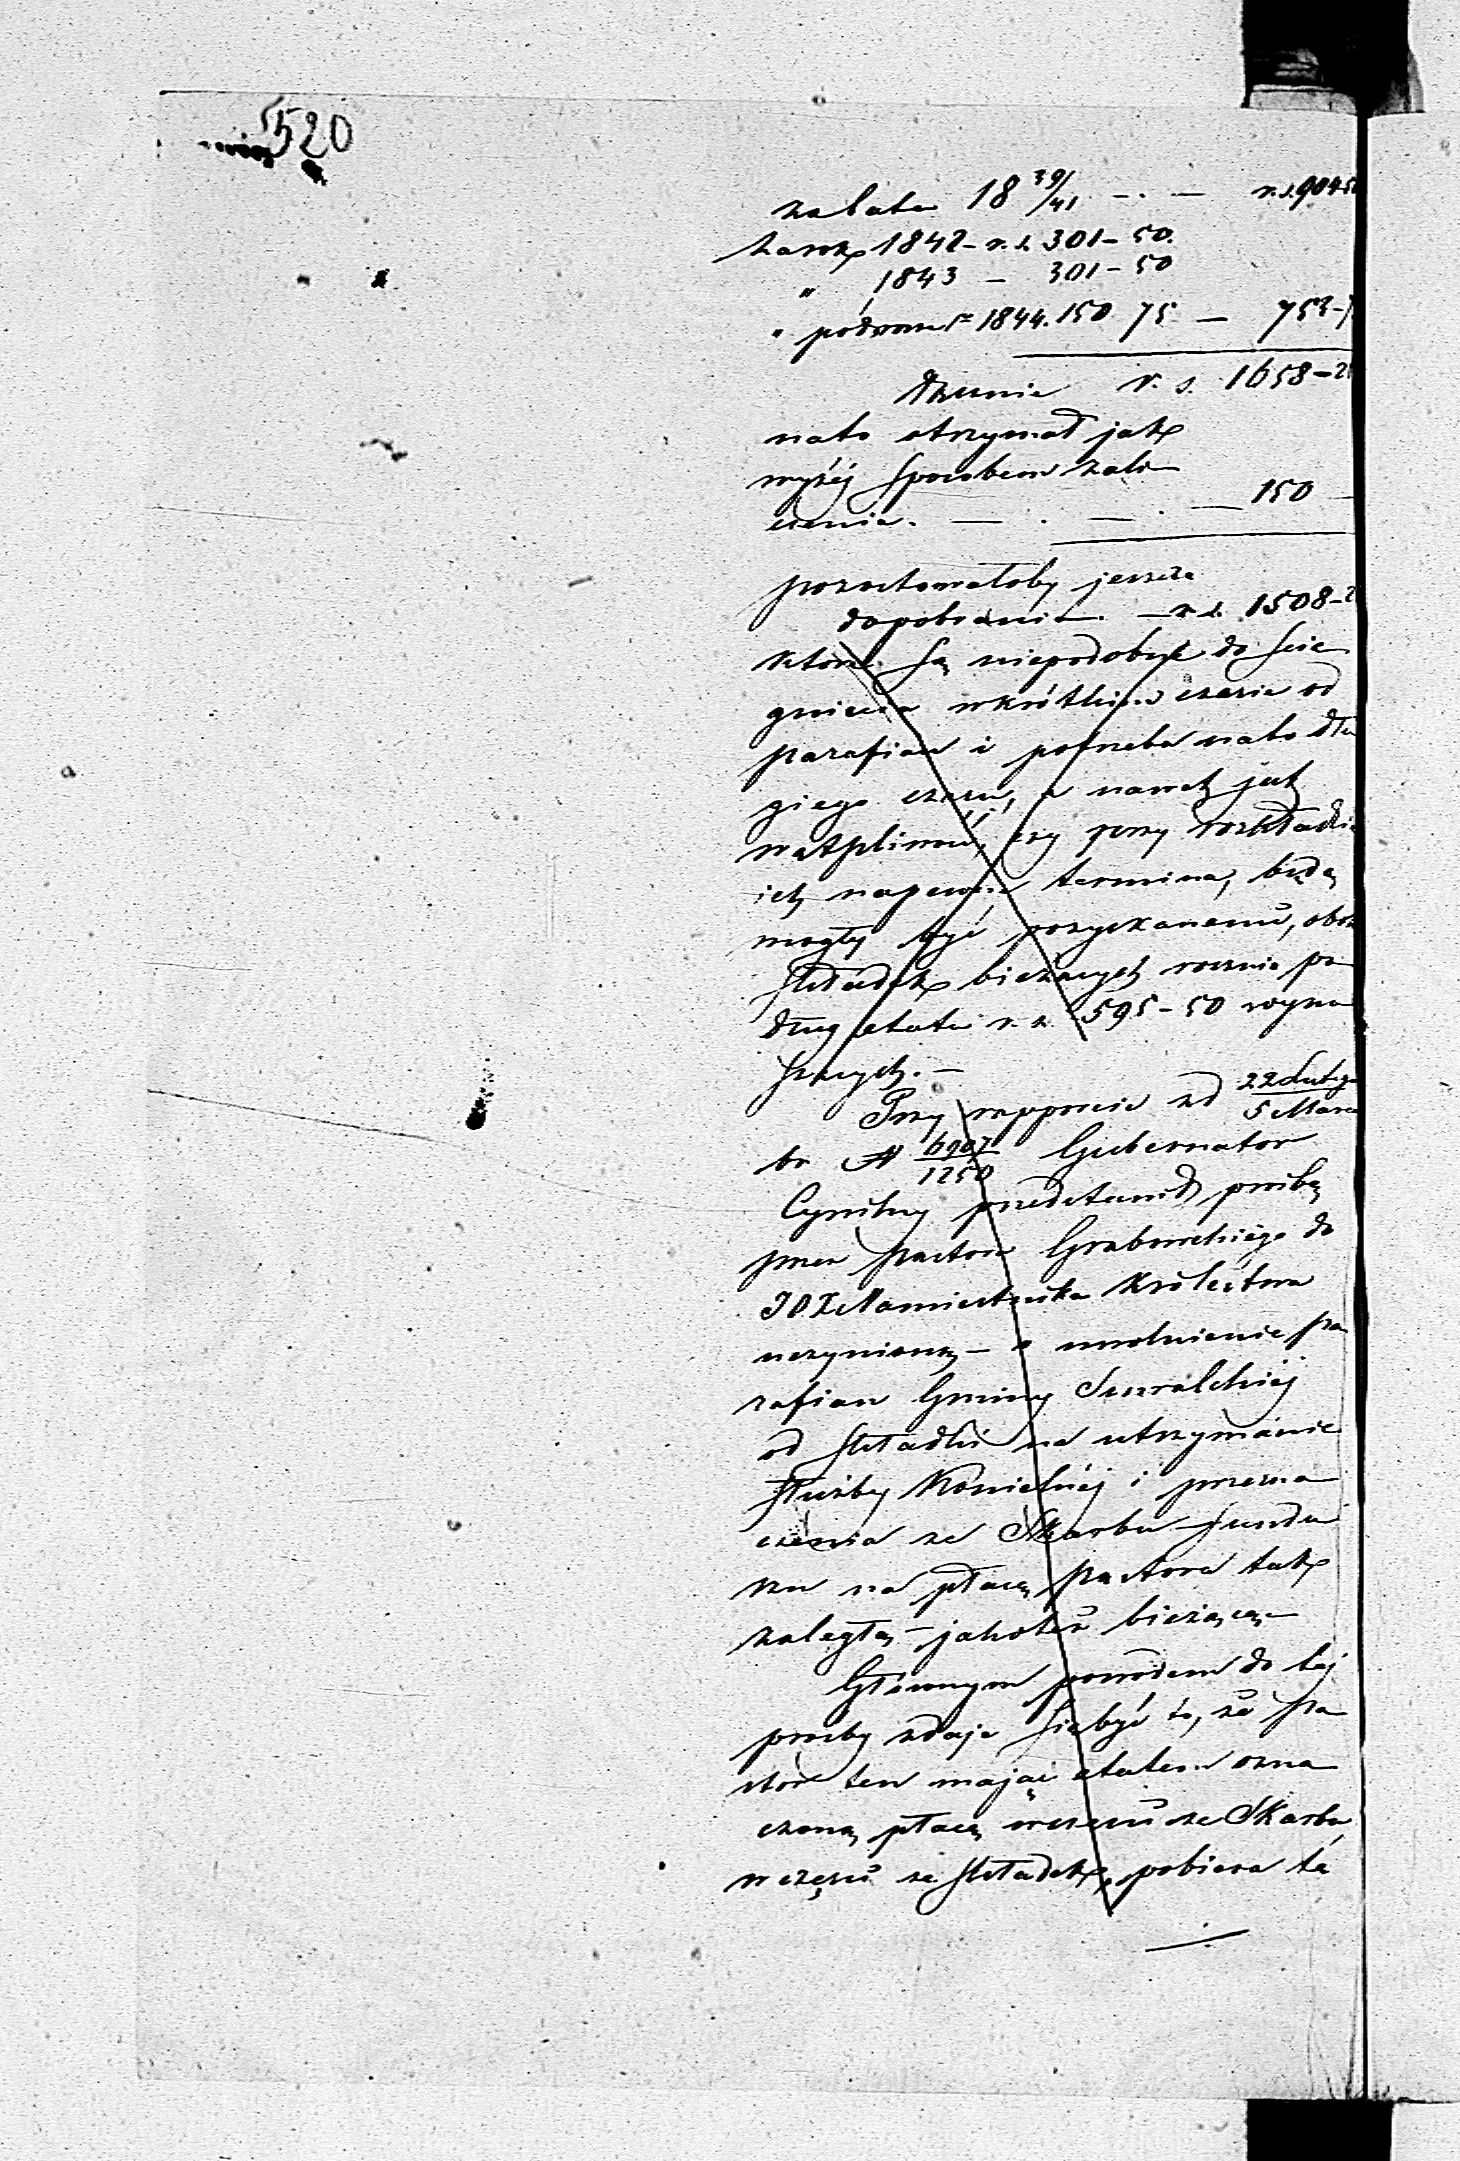 520
za lata 18 39/41 — . — r. s. 904-5
za rok 1842 - r. s. 301 - 50.
" 1843 — 301 - 50
" półrocze 1844. 150 75 — 753 -
Łącznie r. s. 1658 - 2
na to otrzymał jak
wyżéj sposobem zali
czenia. — . — . — 150 —
pozostawałoby jeszcze
do pobrania. — r. s. 1508 - 2
które są niepodobne do ście
gnienia w krótkim czasie od
parafian i potrzeba na to dłu
giego czasu, a nawet jest
wątpliwość, czy przy rozkładzie
ich na pewne termina, będą
mogły być pozyskanemi, obok
składek bieżących rocznie po
dług etatu r. s. 595 - 50 wyno
szących. —
Przy rapporcie z d 22 Lutego / 5 Marca
br № 6907/1250 Gubernator
Cywilny przedstawił prośbę
przez pastora Grabowskiego do
JOX Namiestnika Królestwa
uczynioną — o uwolnienie pa
rafian Gminy Suwalskiéj
od składki na utrzymanie
służby Kościelnéj i przezna
czenia ze Skarbu fundu
szu na płacę pastora tak
zaległą — jakoteż bieżącą —
Głównym powodem do téj
prośby zdaje się być to, że pa
stor ten mając etatem ozna
czoną płacę w części ze Skarbu
w części ze składek, pobiera tę